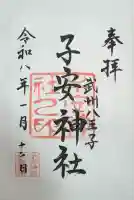 奉拝
武州八王子
子安神社
令和八年一月十二日